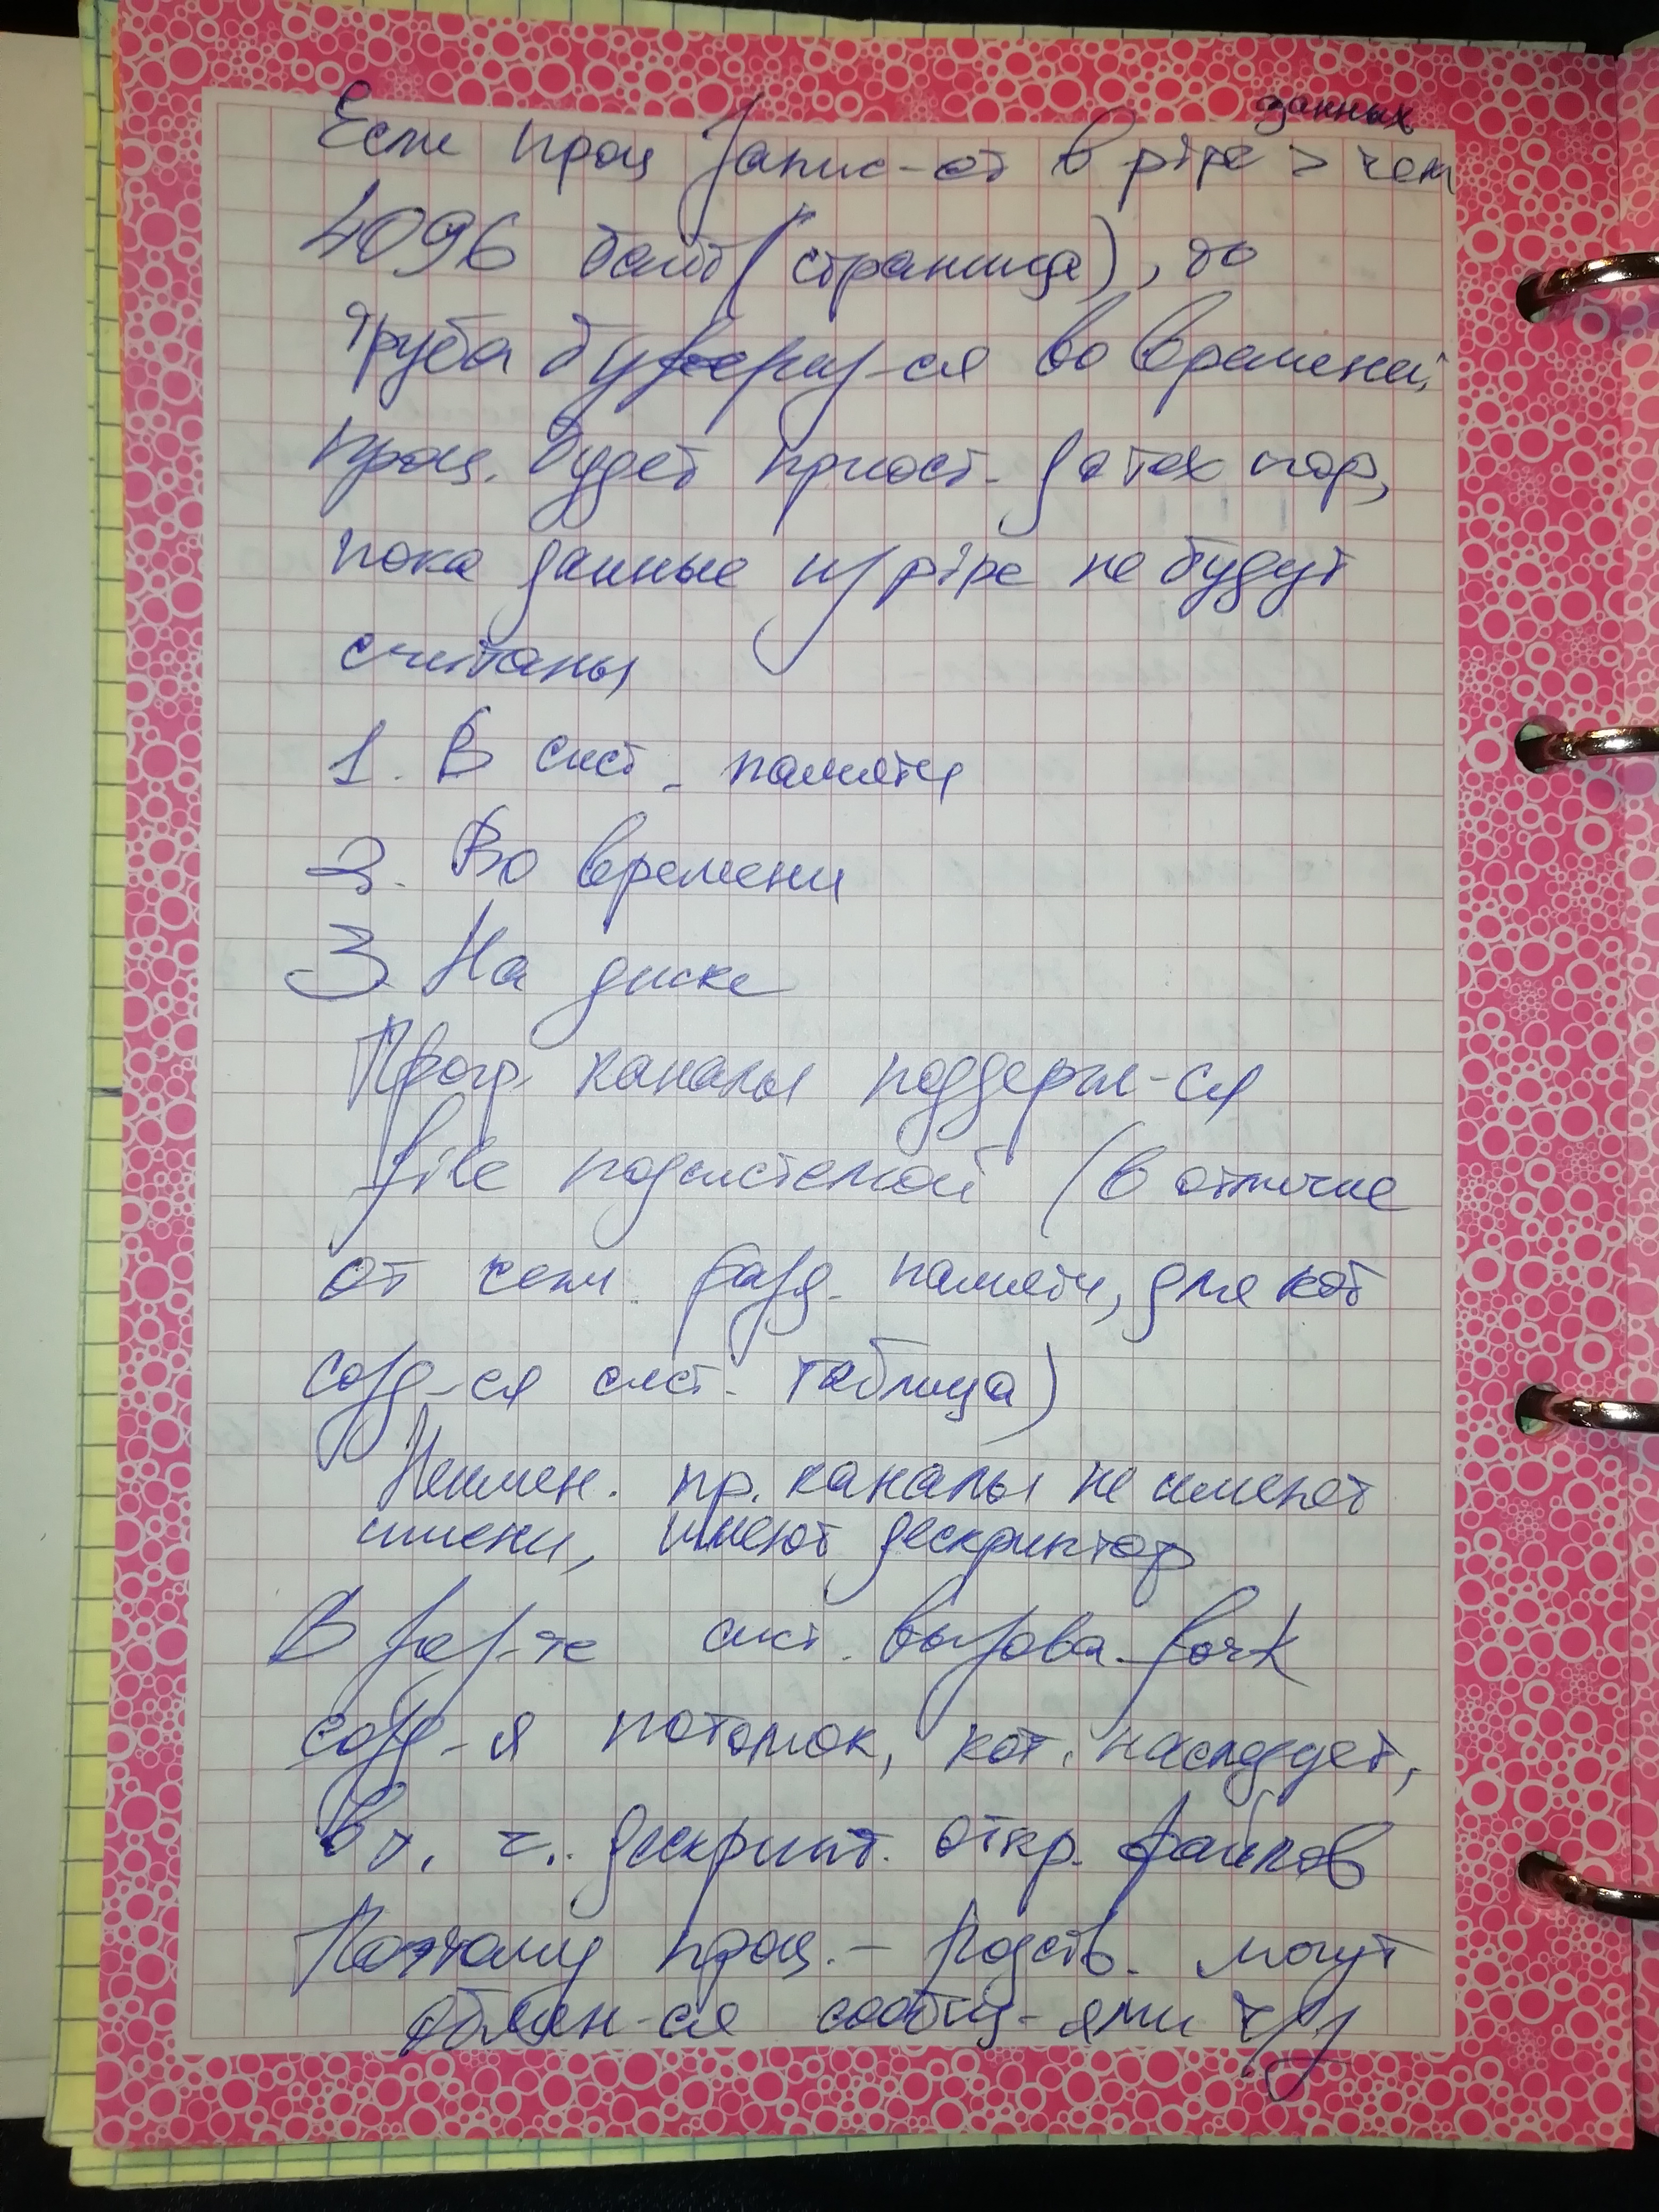 данных
Если проц запис-ет в pipe > чем
4096 байт (страница), то
труба буферизу-ся во времени,
проц. будет приост. до тех пор,
пока данные из pipe не будут
считаны
1. В сист. памяти
2. Во времени
3 На диске
Прогр. каналы поддерж-ся
file подсистемой (в отличие
от сегм. разд. памяти, для кот
созд-ся сист. таблица)
Неимен. пр. каналы не имеют
имени, имеют дескриптор
В рез-те сист. вызова fork
созд-я потомок, кот. наследует,
в т. ч. дескрипт. откр. файлов
Поэтому проц. - родств. могут
обмен-ся сообщ-ями чрз